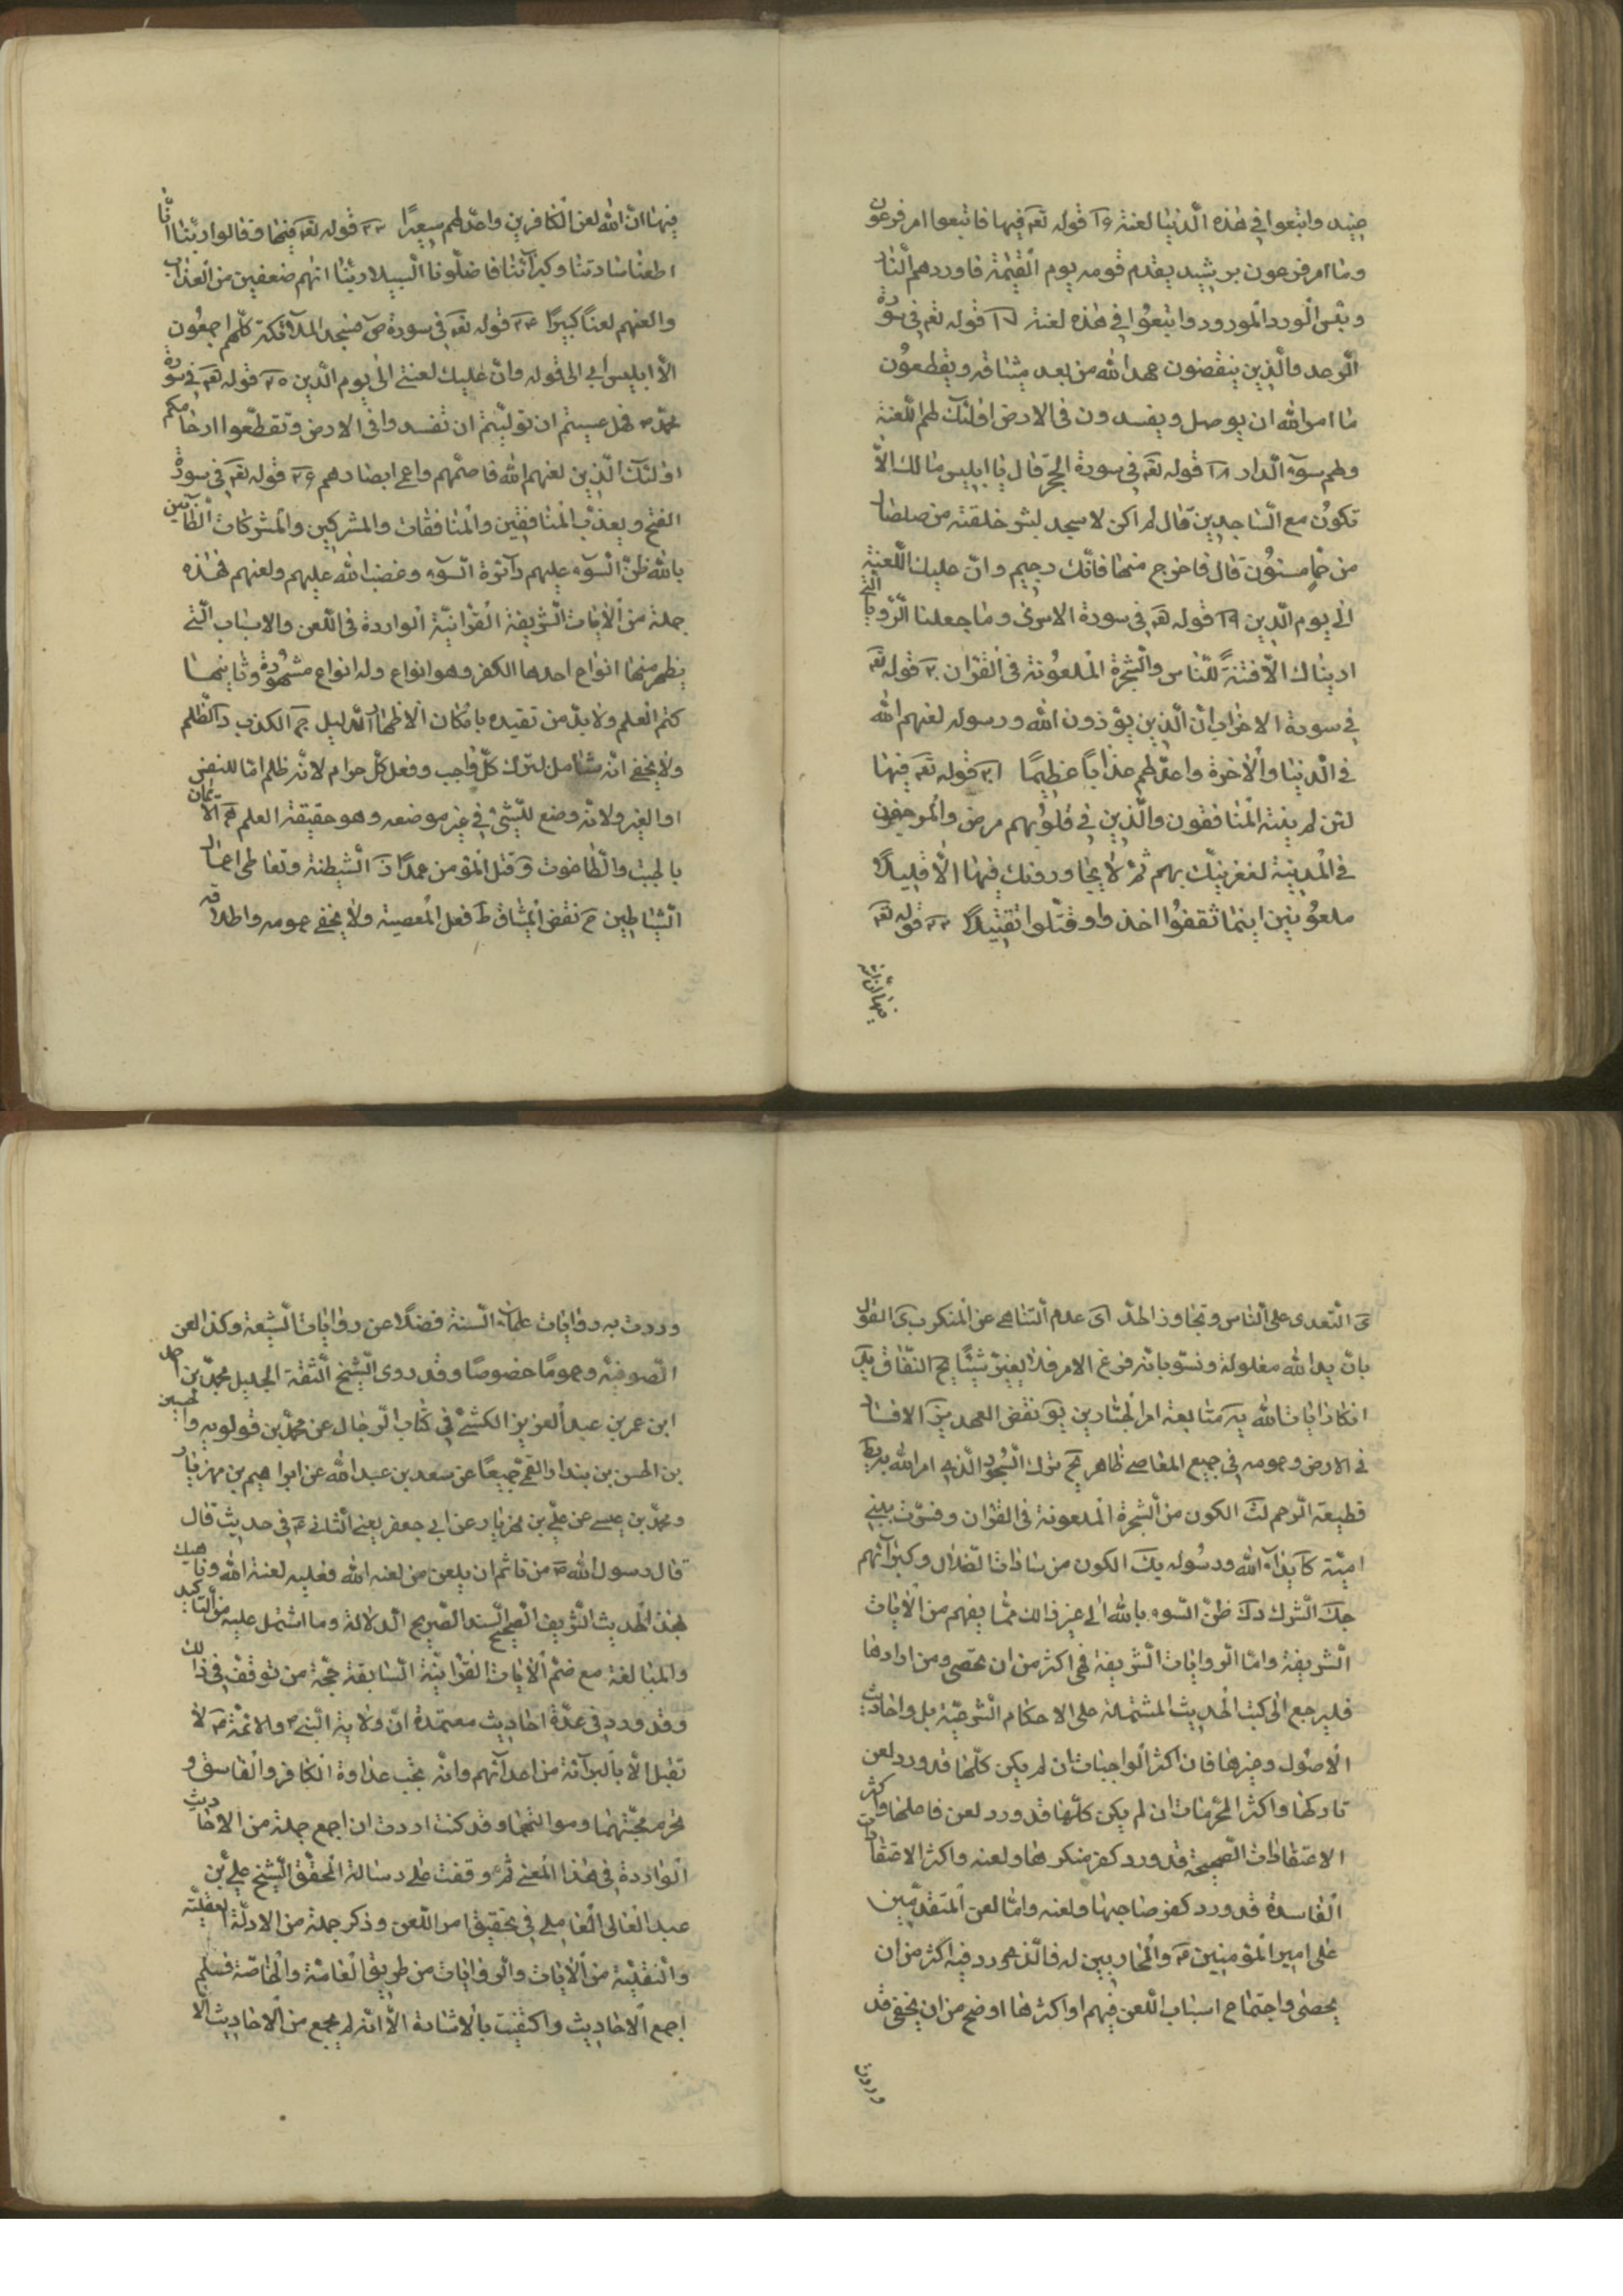 عنيد واتبعوا في هذه الدنيا لعنة ١٦ قوله تعه فيها فاتبعوا امر فرعون
وما امر فرعون برشيد يقدم قومه يوم القيمة فاوردهم النار
وبئس الورد المورود واتبعوا في هذه لعنة ١٧ قوله تعه في سورة
الرعد والذين ينقضون عهد الله من بعد ميثاقه ويقطعون
ما امر الله ان يوصل ويفسدون في الارض اولئك لهم اللعنة
ولهم سوء الدار ١٨ قوله تعه في سورة الحجر قال يا ابليس مالك الا
تكون مع الساجدين قال لم اكن لاسجد لبشر خلقته من صلصال
من حمإ مسنون قال فاخرج منها فانك رجيم وان عليك اللعنة
الى يوم الدين ١٩ قوله تعه في سورة الاسرى وما جعلنا الرؤيا التي
اريناك الا فتنة للناس والشجرة الملعونة في القران ٢٠ قوله تعه
في سورة الاحزاب ان الذين يؤذون الله ورسوله لعنهم الله
في الدنيا والاخرة واعد لهم عذابا عظيما ٢١ قوله تعه فيها
لئن لم ينته المنافقون والذين في قلوبهم مرض والمرجفون
في المدينة لنغرينك بهم ثم لا يجاورونك فيها الا قليلا
ملعونين اينما ثقفوا اخذوا وقتلوا تقتيلا ٢٢ قوله تعه
فيها ان الله
فيها ان الله لعن الكافرين واعد لهم سعيرا ٢٣ قوله تعه فيها وقالوا ربنا انا
اطعنا سادتنا وكبرائنا فاضلونا السبيلا ربنا اتهم ضعفين من العذاب
والعنهم لعنا كبيرا ٢٤ قوله تعه في سورة ص فسجد الملائكة كلهم اجمعون
الا ابليس ابى الى قوله وان عليك لعنتي الى يوم الدين ٢٥ قوله تعه في سورة
محمد ص فهل عسيتم ان توليتم ان تفسدوا في الارض وتقطعوا ارحامكم
اولئك الذين لعنهم الله فاصمهم واعمى ابصارهم ٢٦ قوله تعه في سورة
الفتح ويعذب المنافقين والمنافقات والمشركين والمشركات الظانين
بالله ظن السوء عليهم دائرة السوء وغضب الله عليهم ولعنهم فهذه
جملة من الايات الشريفة القرانية الواردة في اللعن والاسباب التي
يظهر منها انواع احدها الكفر وهو انواع وله انواع مشهورة وثانيها
كتم العلم ولا بد من تقييده بامكان الاظهار للدليل ج الكذب د الظلم
ولا يخفى انه شامل لترك كل واجب وفعل كل حرام لانه ظلم اما للنفس
او الغير ولانه وضع للشئ في غير موضعه وهو حقيقة العلم ه الايمان
بالجبت والطاغوت و قتل المؤمن عمدا ز الشيطنة وتعاطي اعمال
الشياطين ح نقض الميثاق ط فعل المعصية ولا يخفى عمومه واطلاقه
ى التعدي على الناس وتجاوز الحد يا عدم التناهي عن المنكر يب القول
بان يد الله مغلولة ونسوبانه فرغ الامر فلا يغير شيئا يج النفاق يد
انكار ايات الله يه متابعة امر الجبارين يو نقض العهد يز الافساد
في الارض وعمومه في جميع المعاصي ظاهر يح ترك السجود الذي امر الله به يط
قطيعة الرحم ك الكون من الشجرة الملعونة في القران وفسرت ببني
امية كا ايذاء الله ورسوله كب الكون من سادات الضلال وكبرائهم
كج الشرك كد ظن السوء بالله الى غير ذلك مما يفهم من الايات
الشريفة واما الروايات الشريفة فهي اكثر من ان تحصى ومن ارادها
فليرجع الى كتب الحديث المشتملة على الاحكام الشرعية بل واحاديث
الاصول وغيرها فان اكثر الواجبات ان لم يكن كلها قد ورد لعن
تاركها واكثر المحرمات ان لم يكن كلها قد ورد لعن فاعلها واكثر
الاعتقادات الصحيحة قد ورد كفر منكرها ولعنه واكثر الاعتقادات
الفاسدة قد ورد كفر صاحبها ولعنه واما لعن المتقدمين
على امير المؤمنين ع والمحاربين له فالذي ورد فيه اكثر من ان
يحصى واجتماع اسباب اللعن فيهم او اكثرها اوضح من ان يخفى قد
وردت
وردت به روايات علماء السنة فضلا عن روايات الشيعة وكذا لعن
الصوفية وعموما خصوصا وقد روى الشيخ الثقة الجليل محمد بن
ابن عمر بن عبد العزيز الكشي في كتاب الرجال عن محمد بن قولويه والحسين
بن الحسن بن بندار القمي جميعا عن سعد بن عبد الله عن ابراهيم بن مهزيار
ومحمد بن عيسى عن علي بن مهزيار عن ابي جعفر يعني الثاني ع في حديث قال
قال رسول الله ص من تاثم ان يلعن من لعنه الله فعليه لعنة الله وناهيك
بهذا الحديث الشريف الصحيح السند الصريح الدلالة وما اشتمل عليه من التاكيد
والمبالغة مع ضم الايات القرانية السابقة حجة من توقف في ذلك
وقد ورد في عدة احاديث معتمدة ان ولاية النبي ص والائمة ع لا
تقبل الا بالبرائة من اعدائهم وانه يجب عداوة الكافر والفاسق و
يحرم محبتهما وموالاتهما وقد كنت اردت ان اجمع جملة من الاحاديث
الواردة في هذا المعنى ثم وقفت على رسالة المحقق الشيخ علي بن
عبد العالي العاملي في تحقيق امر اللعن وذكر جملة من الادلة العقلية
والنقلية من الايات والروايات من طريق العامة والخاصة فلم
اجمع الاحاديث واكتفيت بالاشارة الا انه لم يجمع من الاحاديث الا